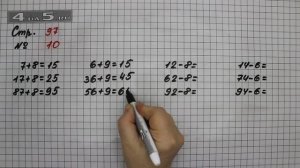 4 на 5.ru
Стр. 97
№ 10
7+8=15 6+9=15 12-8= 14-6=
17+8=25 36+9=45 62-8= 74-6=
87+8=95 56+9=6 92-8= 94-6=